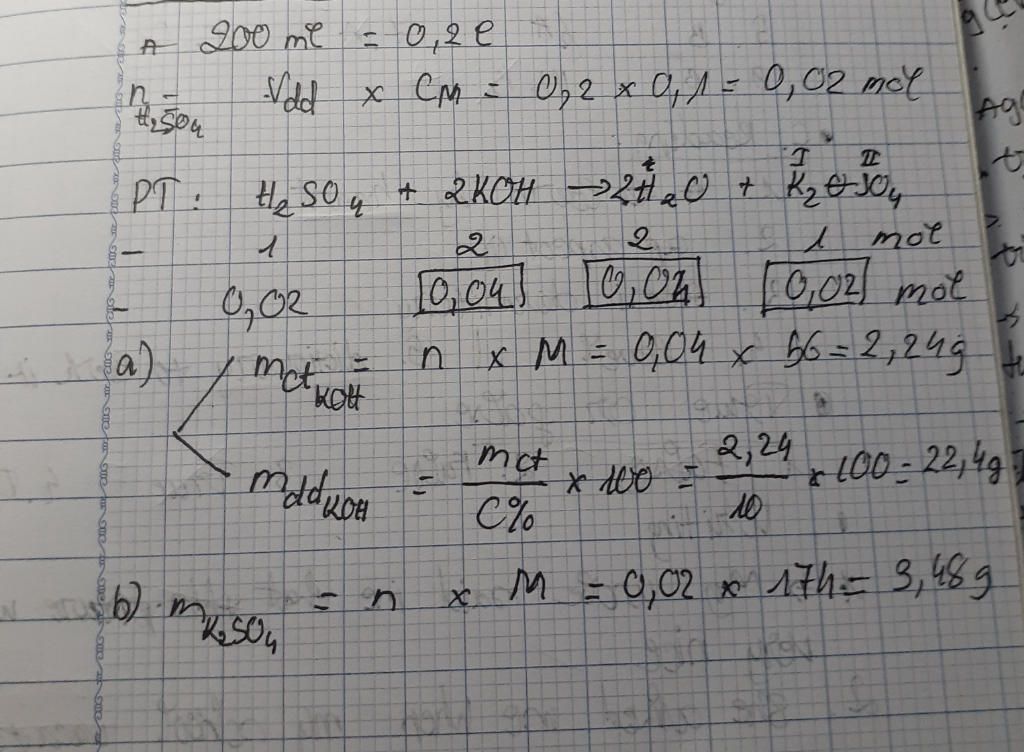 200 ml = 0,2 l
n H₂SO₄ = Vdd x CM = 0,2 x 0,1 = 0,02 mol
PT: H₂SO₄ + 2KOH → 2H₂O + K₂SO₄
- 1 2 2 1 mol
- 0,02 0,04 0,04 0,02 mol
a) mct KOH = n x M = 0,04 x 56 = 2,24g
mdd KOH = mct / C% x 100 = 2,24 / 10 x 100 = 22,4g
b) m K₂SO₄ = n x M = 0,02 x 174 = 3,48g